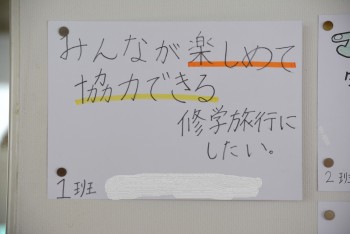 みんなが楽しめて
協力できる
修学旅行に
したい。
1班
2班